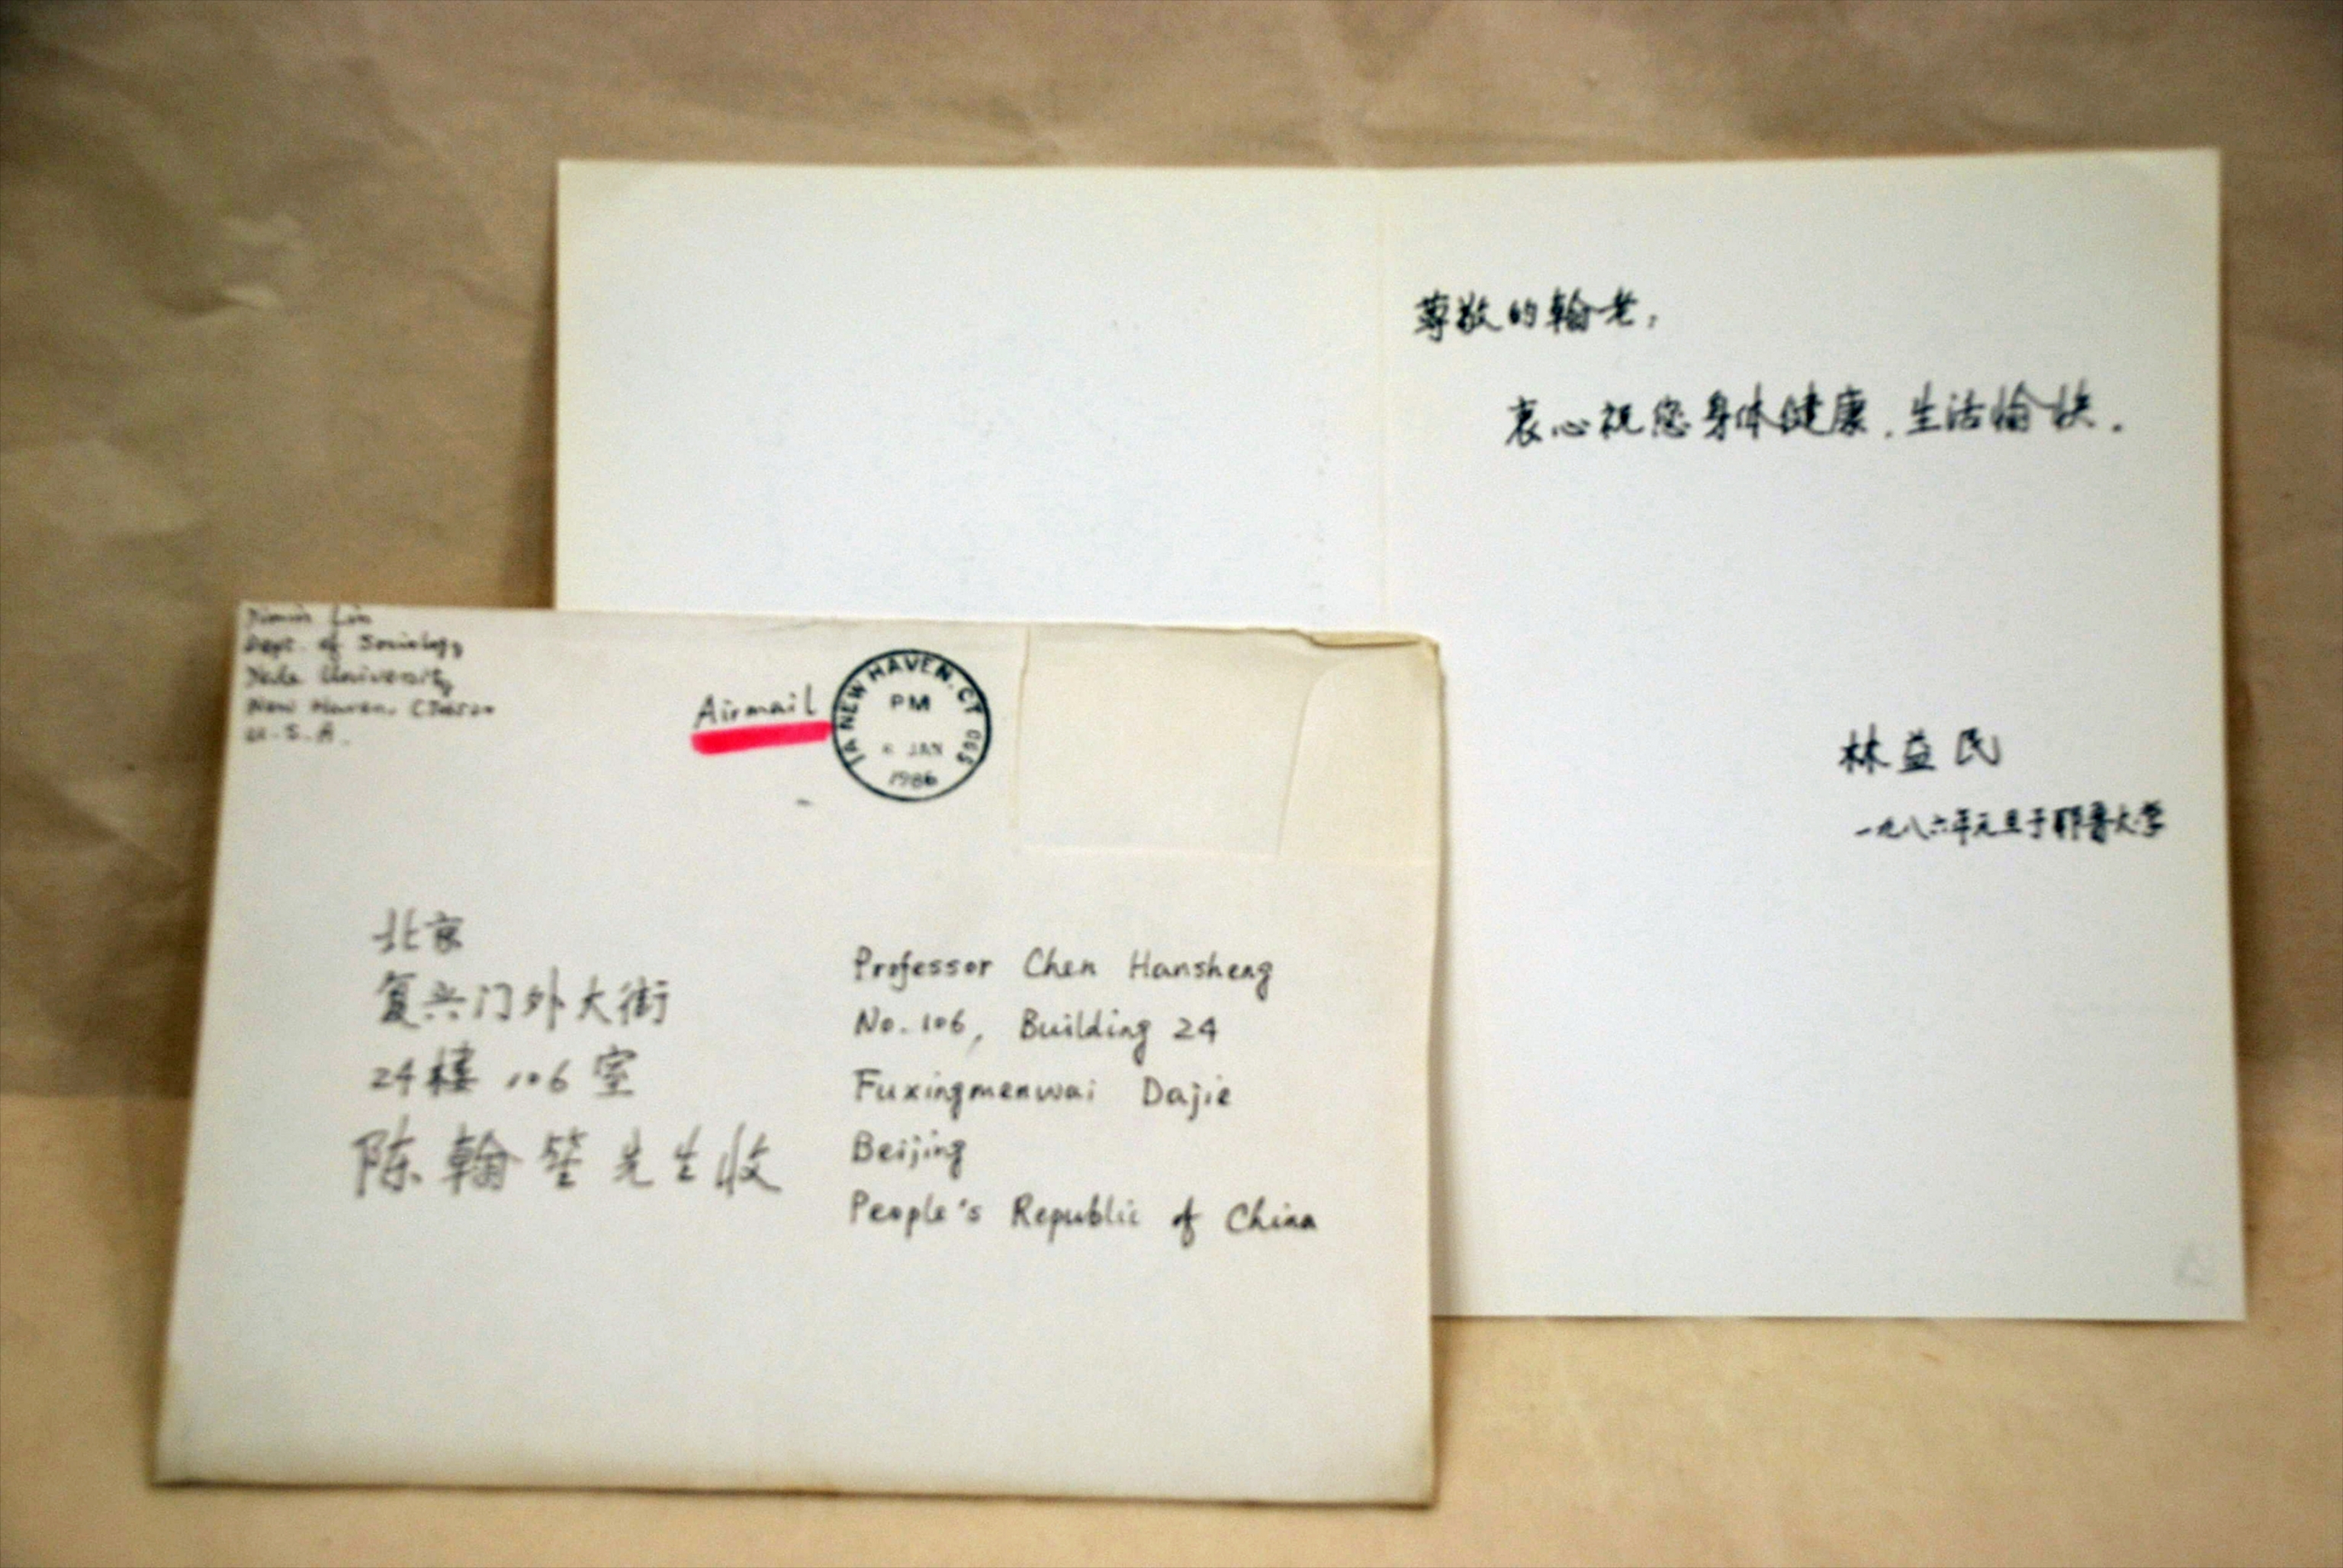 尊敬的翰老:
衷心祝您身体健康,生活愉快。
林益民
一九八六年元旦于耶鲁大学
Yimin Lin
Dept. of Sociology
Yale University
New Haven, CT 06520
U.S.A.
Airmail
NEW HAVEN, CT
PM
JAN
1986
北京
复兴门外大街
24楼 106室
陈翰笙先生收
Professor Chen Hansheng
No. 106, Building 24
Fuxingmenwai Dajie
Beijing
People's Republic of China